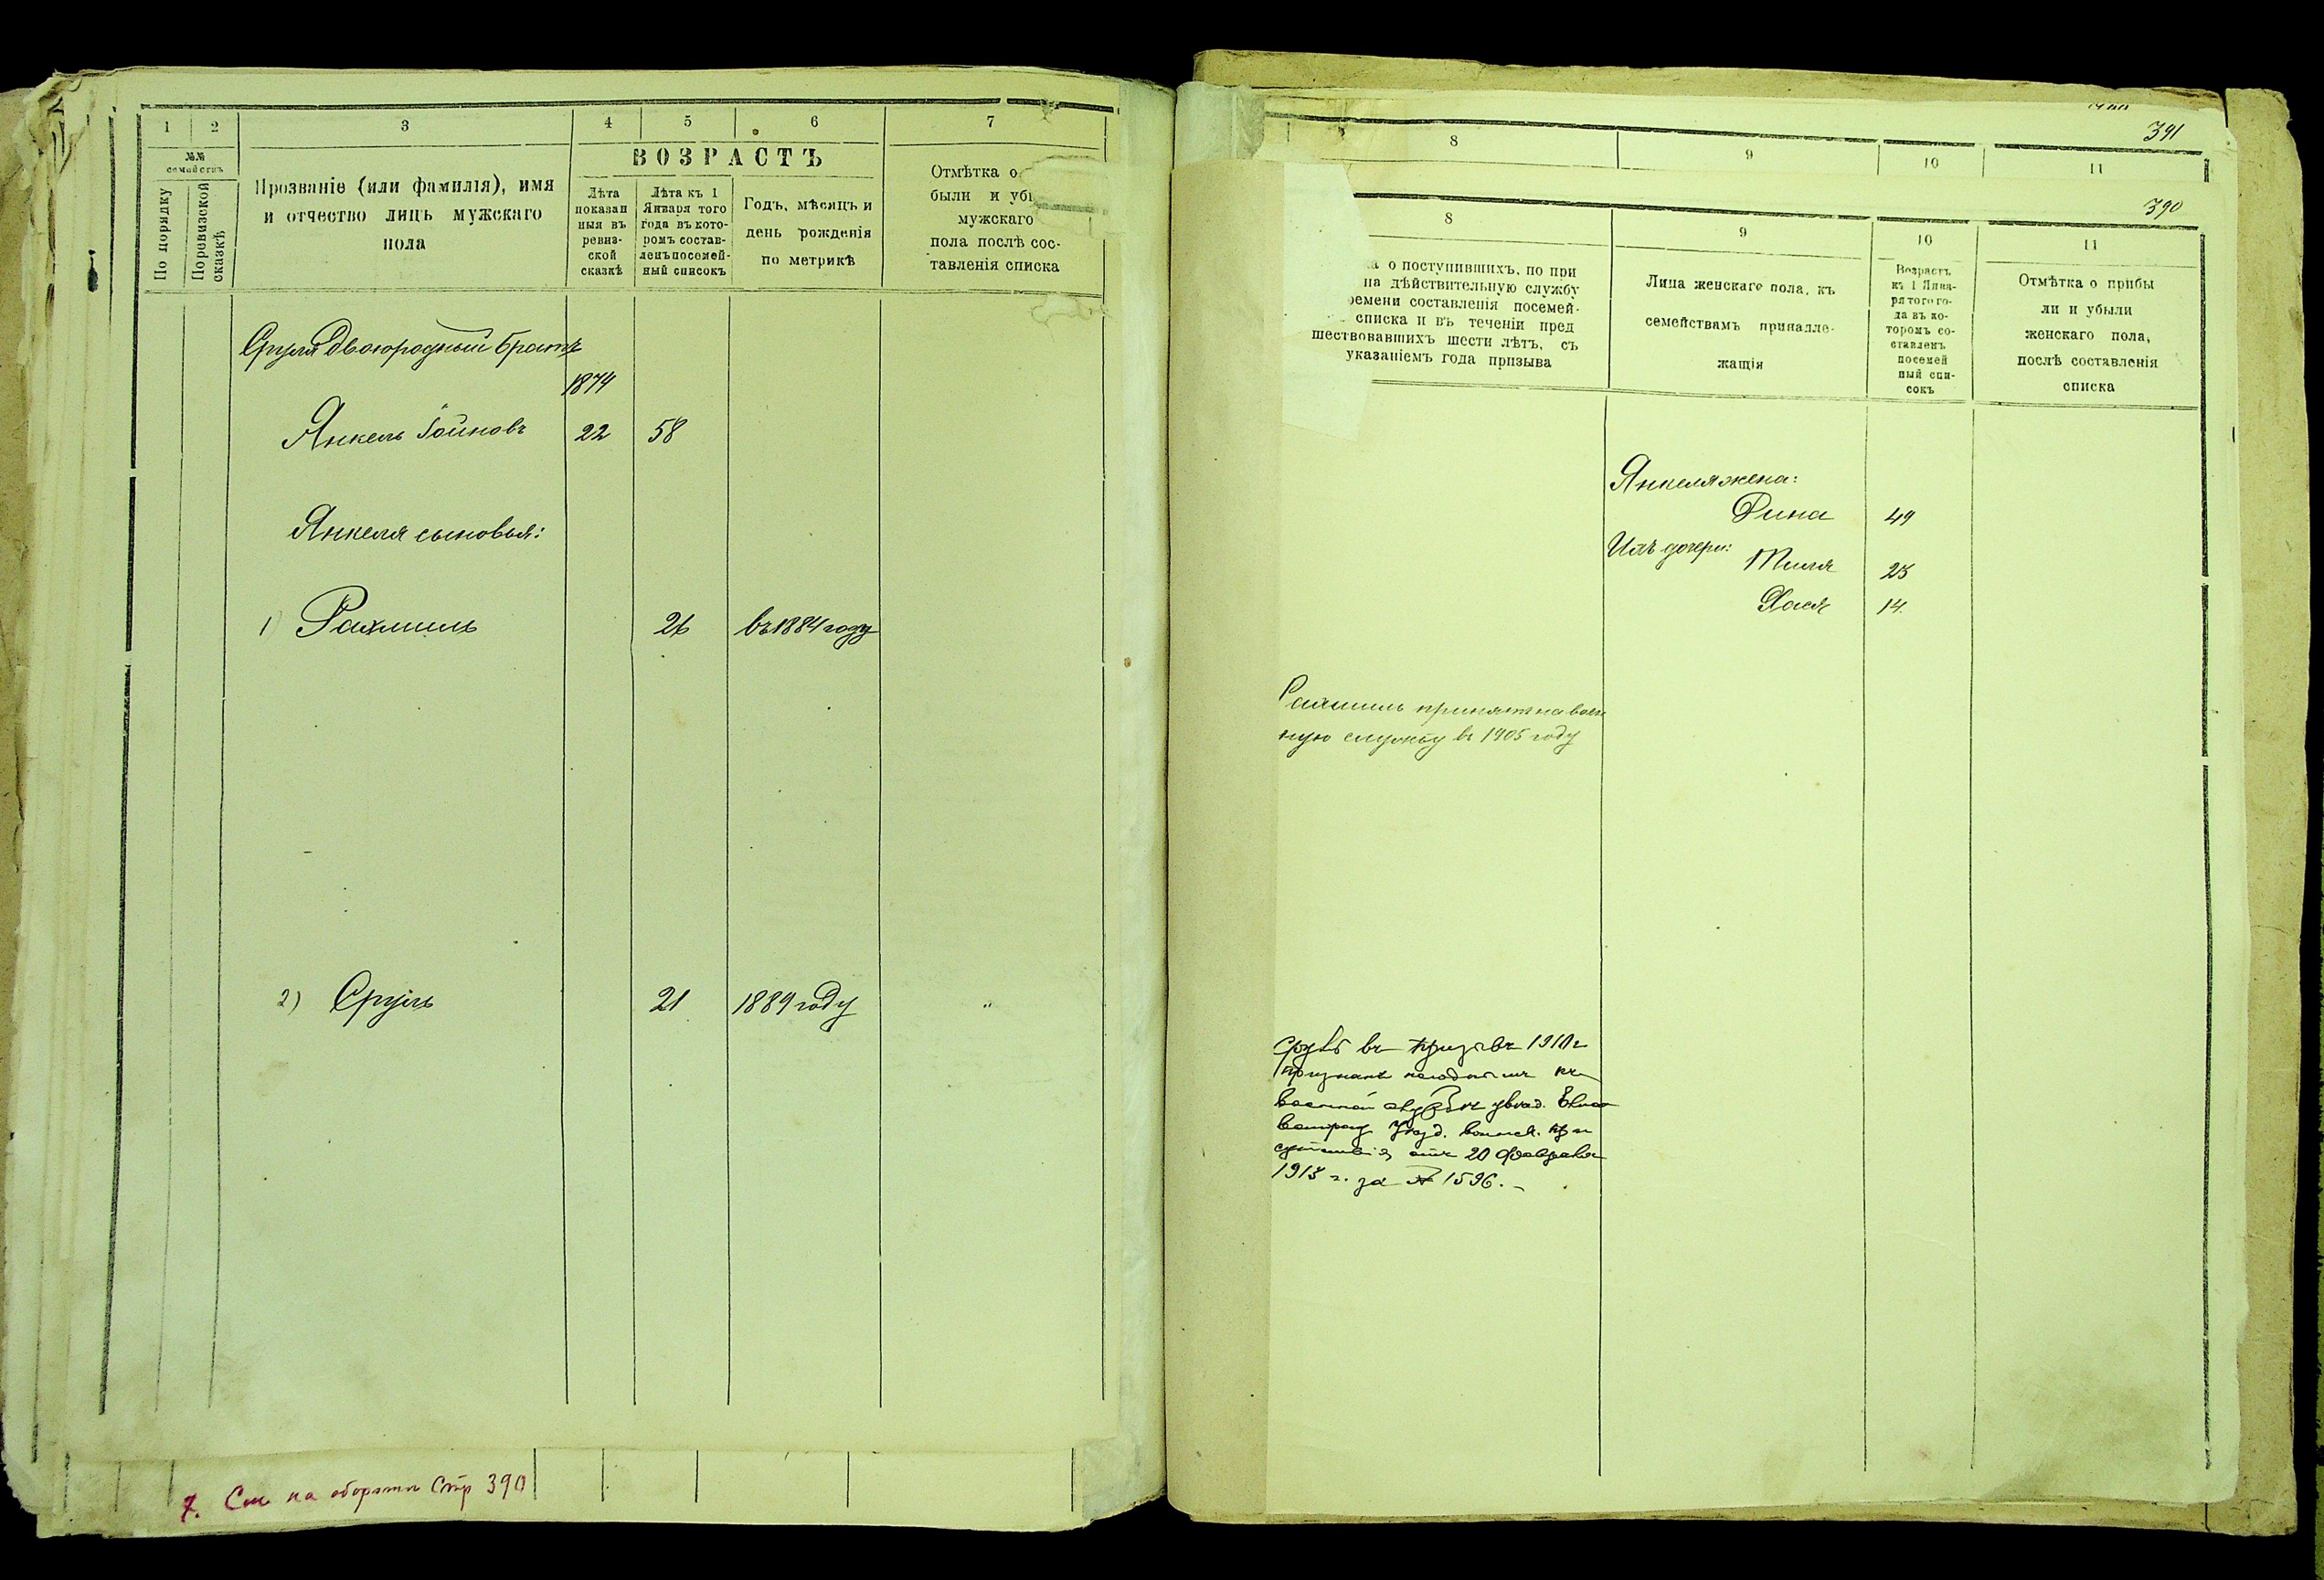 1 2 3 4 5 6 7
№№
семействъ
По порядку
По ревизской
сказкѣ
Прозваніе (или фамилія), имя
и отчество лицъ мужскаго
пола
ВОЗРАСТЪ
Лѣта
показан
ныя въ
ревиз-
ской
сказкѣ
Лѣта къ 1
Января того
года въ кото-
ромъ состав-
ленъ посемей-
ный списокъ
Годъ, мѣсяцъ и
день рожденія
по метрикѣ
Отмѣтка о
были и уб
мужскаго
пола послѣ сос-
тавленія списка
Сруля двоюродный братъ
1874
Янкель Іойновъ 22 58
Янкеля сыновья:
1) Рахмиль 26 въ 1884 году
2) Сруль 21 1889 году
См на оборотѣ Стр 390
391
8 9 10 11
390
8 9 10 11
о поступившихъ, по при
на дѣйствительную службу
ремени составленія посемей-
списка и въ теченіи пред
шествовавшихъ шести лѣтъ, съ
указаніемъ года призыва
Лица женскаго пола, къ
семействамъ принадле-
жащія
Возрастъ
къ 1 Янва-
ря того го-
да въ ко-
торомъ со-
ставленъ
посемей
ный спи-
сокъ
Отмѣтка о прибы
ли и убыли
женскаго пола,
послѣ составленія
списка
Янкеля жена:
Дина 49
Ихъ дочери: Тиля 23
Хася 14.
Рахмиль принятъ на воен
ную службу въ 1905 году
Сруль въ призывъ 1910 г
признанъ негоднымъ къ
военной службѣ увѣд. Елиса
ветград Уѣзд. воинск. при
сутствія отъ 20 Февраля
1913 г. за № 1596.